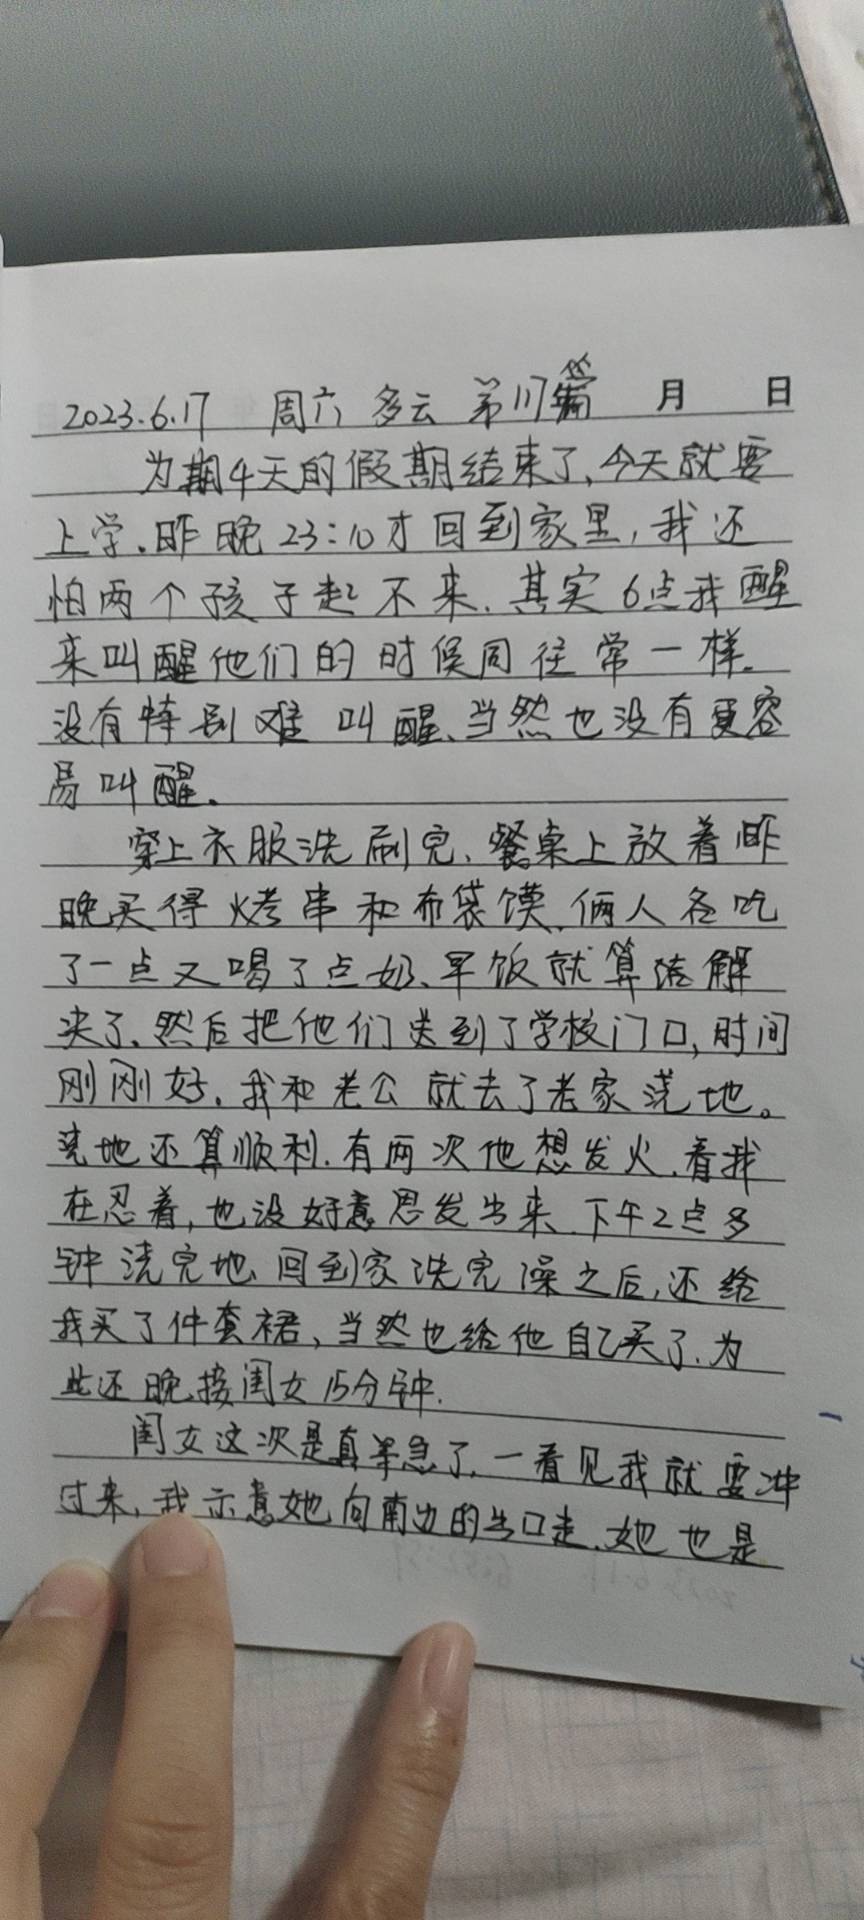 2023.6.17 周六 多云 第117篇 月 日
为期4天的假期结束了、今天就要
上学、昨晚23:10才回到家里，我还
怕两个孩子起不来、其实6点我醒
来叫醒他们的时候同往常一样、
没有特别难叫醒、当然也没有更容
易叫醒。
穿上衣服洗刷完、餐桌上放着昨
晚买得烤串和布袋馍、俩人各吃
了一点又喝了点奶、早饭就算结解
决了、然后把他们送到了学校门口，时间
刚刚好、我和老公就去了老家浇地。
浇地还算顺利、有两次他想发火、看我
在忍着，也没好意思发出来、下午2点多
钟浇完地、回到家洗完澡之后，还给
我买了件套裙，当然也给他自己买了、为
此还晚接闺女15分钟.
闺女这次是真等急了、一看见我就要冲
过来、我示意她向南边的出口走、她也是